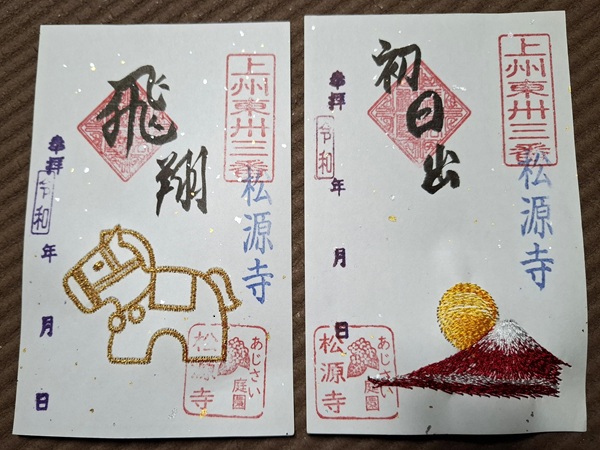 上州東卅三番
松源寺
飛翔
奉拝 令和 年 月 日
あじさい
庭園
松源寺
上州東卅三番
松源寺
初日出
奉拝 令和 年 月 日
あじさい
庭園
松源寺